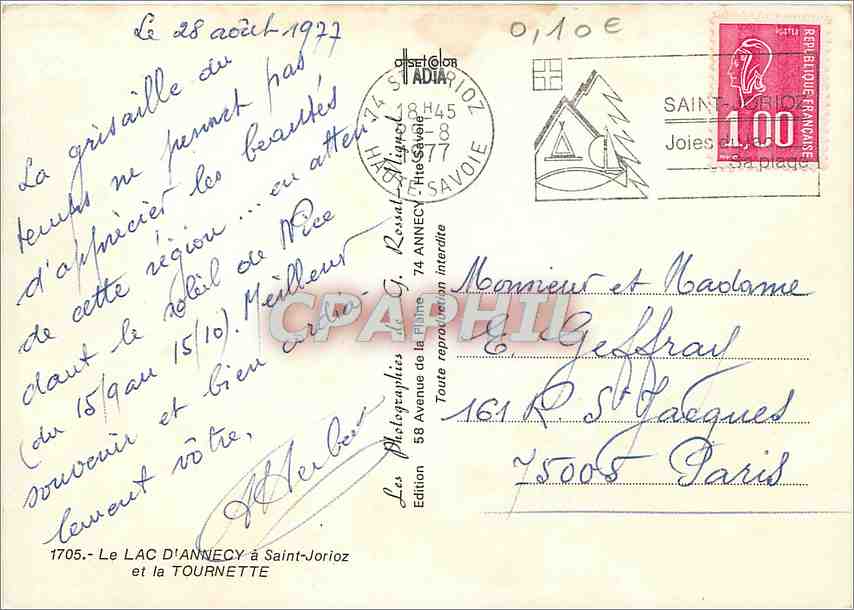 Le 28 août 1977
La grisaille du
temps ne permet pas
d'apprécier les beautés
de cette région... en atten
dant le soleil de Nice
(du 15/9 au 15/10). Meilleur
souvenir et bien cordia-
lement vôtre,
AHerbert
1705.- Le LAC D'ANNECY à Saint-Jorioz
et la TOURNETTE
OFFSETCOLOR
IADIA
Les Photographies de G. Rossat-Mignod
Edition 58 Avenue de la Plaine 74 ANNECY Hte Savoie
Toute reproduction interdite
0,10 €
74 ST JORIOZ
18H45
-8
1977
HAUTE-SAVOIE
SAINT-JORIOZ
Joies du lac
Sa plage
POSTES
1,00
REPUBLIQUE FRANÇAISE
CPAPHIL
Monsieur et Madame
E. Geffray
161 R. St Jacques
75005 Paris